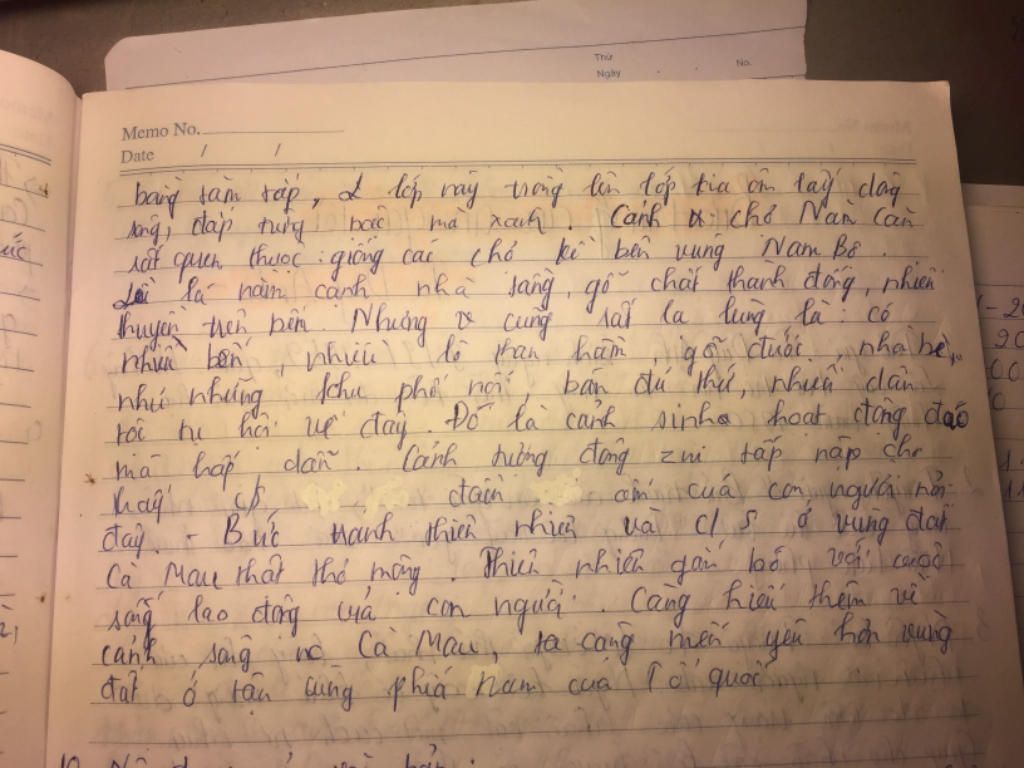 Thứ
Ngày . . No.
Memo No.
Date / /
bằng tăm tắp, lớp này trồng lên lớp kia ôm lấy dòng
sông, đắp từng bậc mà xanh. Cảnh chợ Năm Căn
rất quen thuộc: giống các chợ kề bên vùng Nam Bộ.
là nằm cạnh nhà sàng, gỗ chất thành đống, nhiều
thuyền trên bến. Nhưng cũng rất lạ lùng là: có
nhiều bến, nhiều lò than hầm, gỗ đước, nhà bè,
như những khu phố nổi, bán đủ thứ, nhiều dân
tộc tụ hội về đây. Đó là cảnh sinh hoạt động đáo
mà hấp dẫn. Cảnh tượng đông zui tấp nập cho
thấy c/s đầm ấm của con người nơi
đây. - Bức tranh thiên nhiên và c/s ở vùng đất
Cà Mau thật thơ mộng. Thiên nhiên gắn bó với cuộc
sống lao động của con người. Càng hiểu thêm về
cảnh sông nc Cà Mau, ta càng mến yêu hơn vùng
đất ở tận cùng phía Nam của Tổ quốc